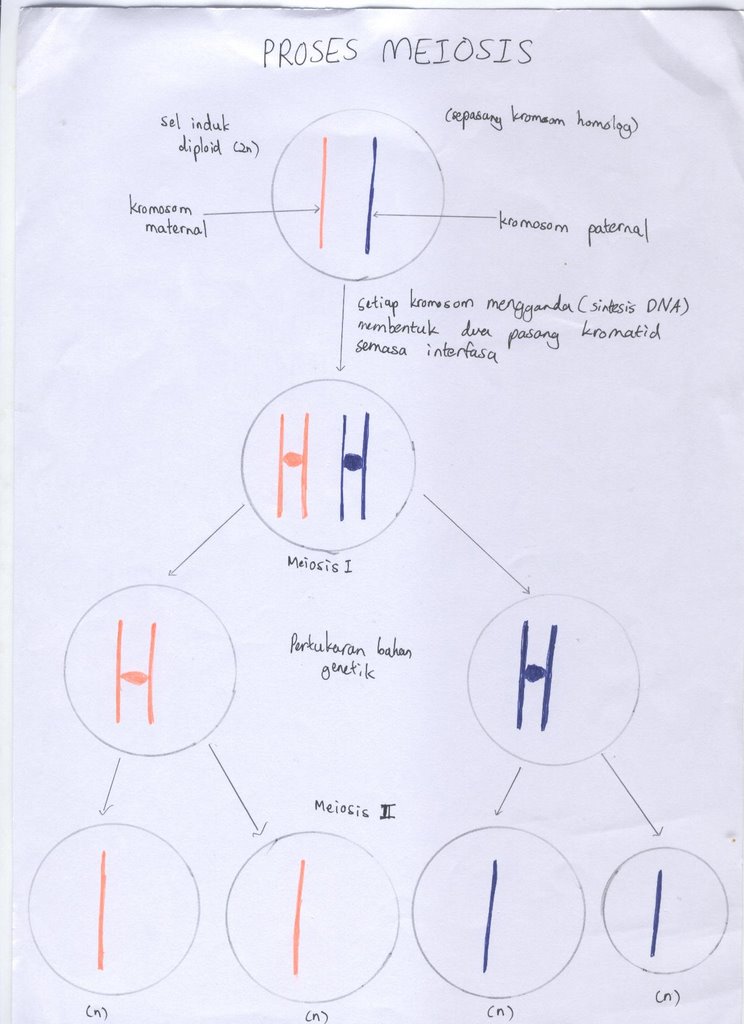 PROSES MEIOSIS
sel induk
diploid (2n)
(sepasang kromosom homolog)
kromosom
maternal
kromosom paternal
setiap kromosom mengganda (sintesis DNA)
membentuk dua pasang kromatid
semasa interfasa
Meiosis I
Pertukaran bahan
genetik
Meiosis II
(n)
(n)
(n)
(n)